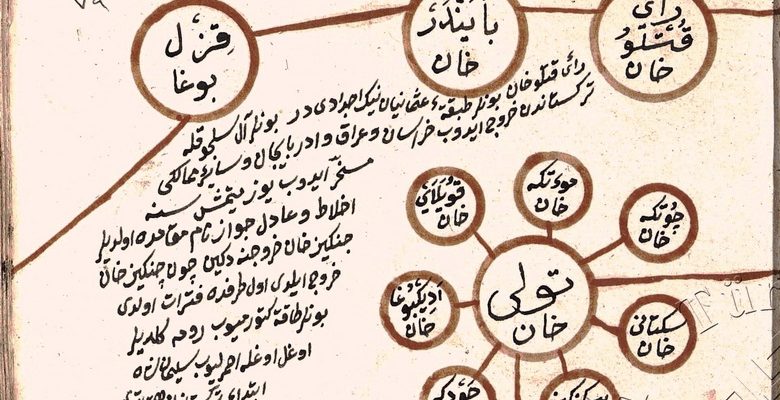 رای
قُتلو
خان
بایندر
خان
قزل
بوغا
رای قتلو خان بونلر طبقهٔ عثمانیان نیک اجدادی در بونلر آل سلجوقله
ترکستاندن خروج ایدوب خراسان و عراق و ادربایجان و سایر ممالکی
مسخر ایدوب یوز یتمش سنه
اخلاط و عادل جواز نام مقامده اولدیلر
جنکیز خان خروجنه دکین چون جنکیز خان
خروج ایلدی اول طرفده فترات اولدی
بونلر طاقة کتورمیوب رومه کلدیلر
اوغل اوغله سلیمان
ابتدای
تولی
خان
موءتکه
خان
قوبلای
خان
جُوتکه
خان
اریکبوغا
خان
سکتای
خان